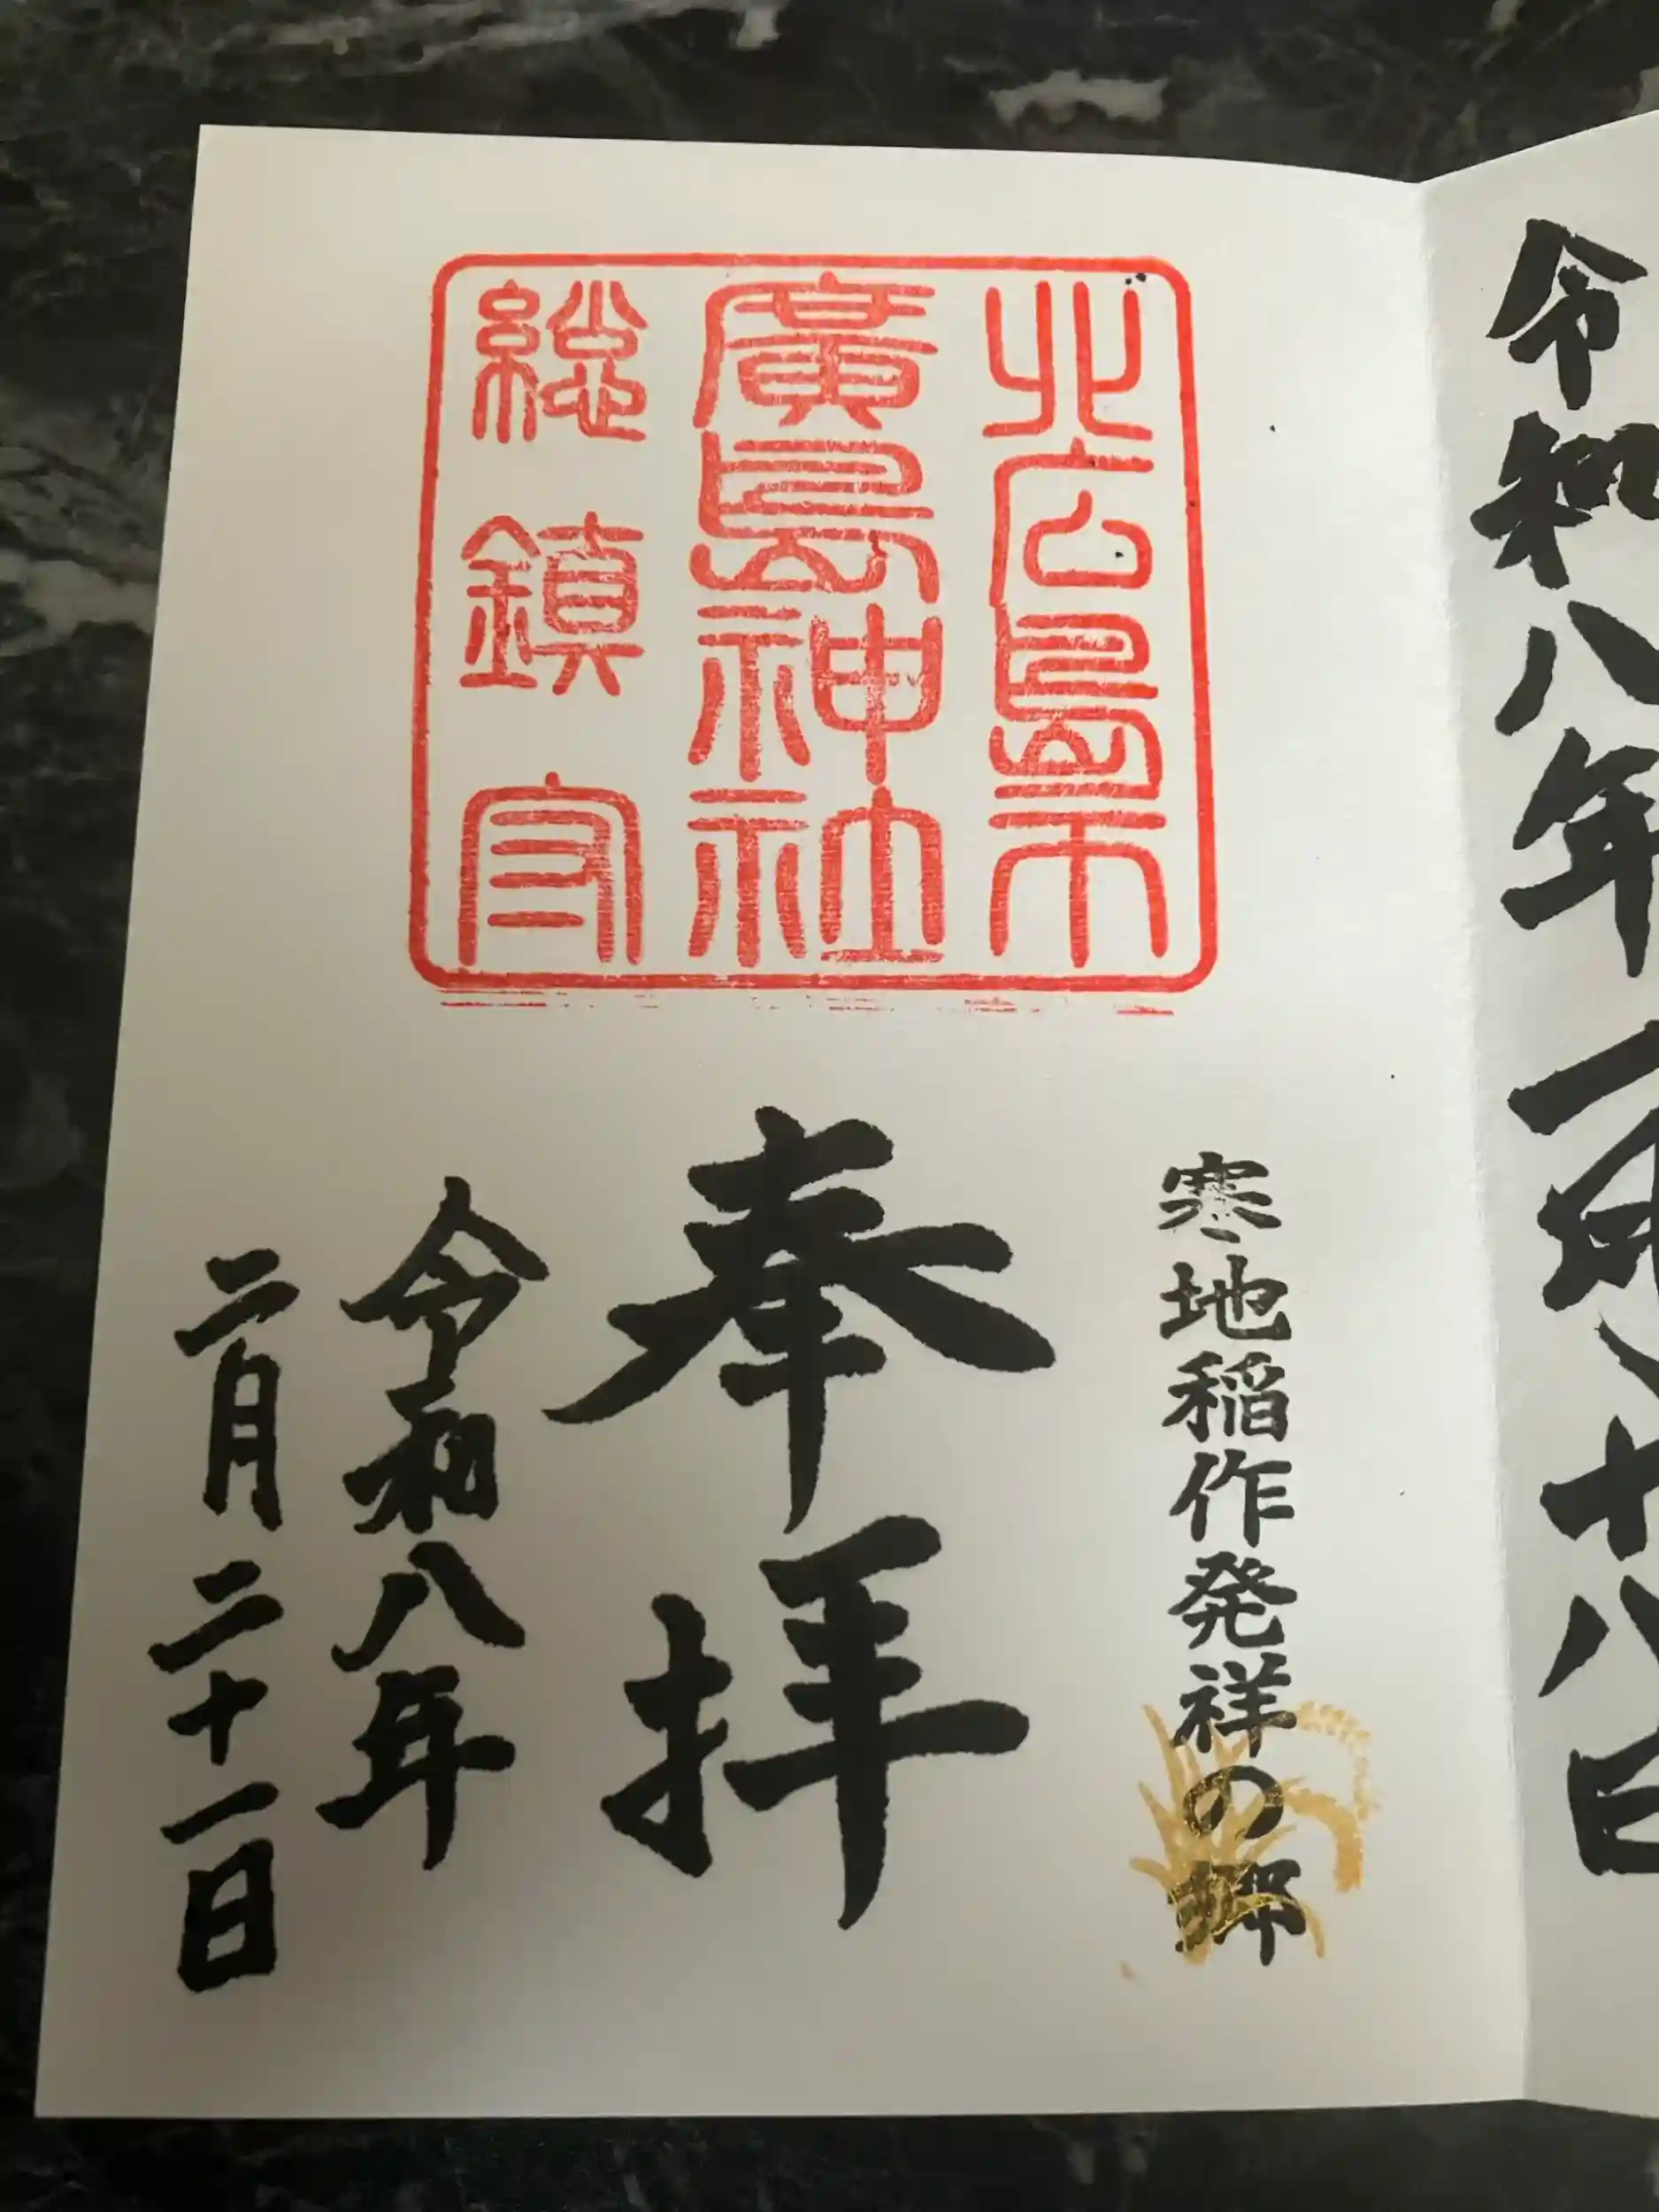 令和八年一月十八日
北広島市
廣島神社
総鎮守
寒地稲作発祥の郷
奉拝
令和八年
二月二十一日